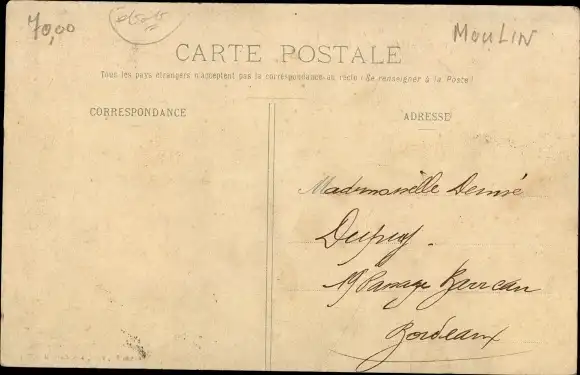 70,00
MOULIN
CARTE POSTALE
Tous les pays étrangers n'acceptent pas la correspondance au recto (Se renseigner à la Poste)
CORRESPONDANCE
ADRESSE
Mademoiselle Denise
Dupuy.
19 Passage Barreau
Bordeaux